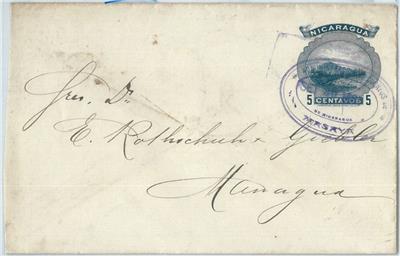 NICARAGUA
5 CENTAVOS 5
DE NICARAGUA
MASAYA
Sres. Dr.
E. Rothschuh
Managua